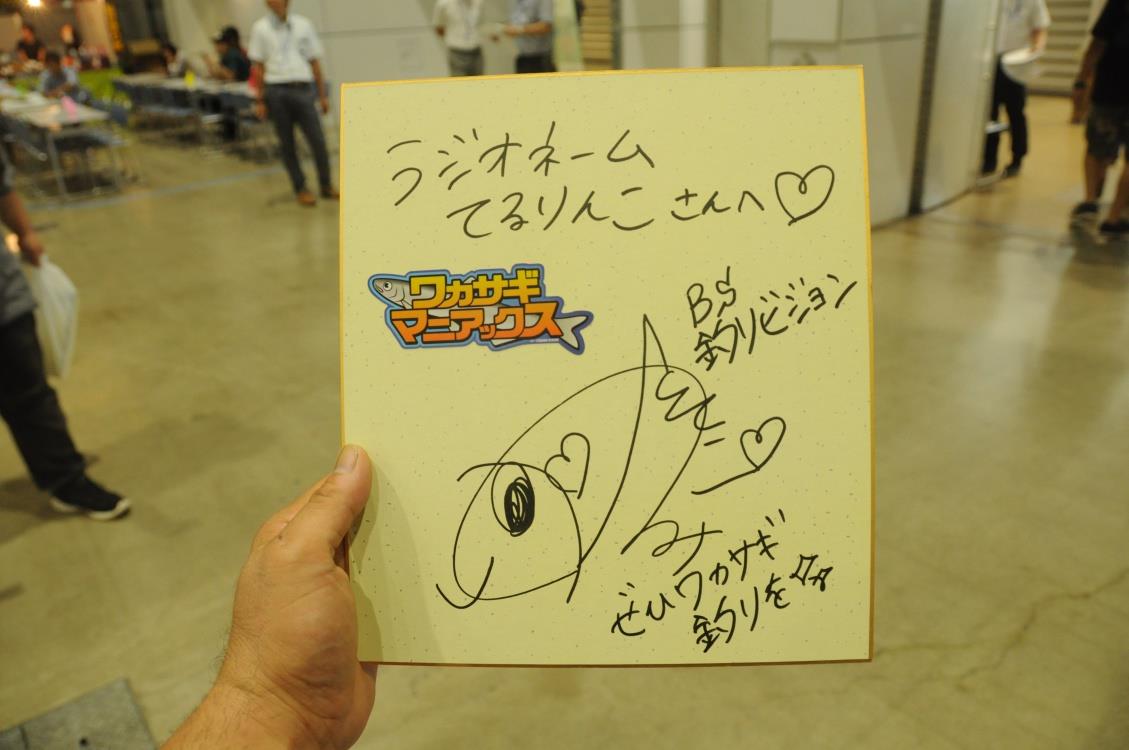 ラジオネーム
てるりんこさんへ♡
ワカサギ
マニアックス
BS
釣りビジョン
ぜひワカサギ
釣りを☆